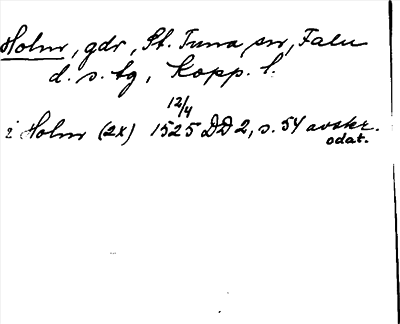 Holm, gdr, St. Tuna sn, Falu
d. s. tg, Kopp. l.
12/4
i Holm (2x) 1525 DD 2, s. 54 avskr.
odat.